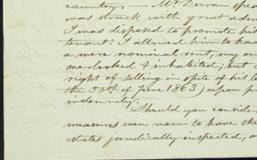 country. — Mr. Duran spea
was struck with great adm
I was disposed to promote his
tenant: I allowed him to hav
a mere nominal rent, my
overlooked & inhabited, but
right of selling in spite of his le
the 30th of June 1863) upon p
indemnity.
Should you consider
measures even now to have the
estates juridically inspected, a